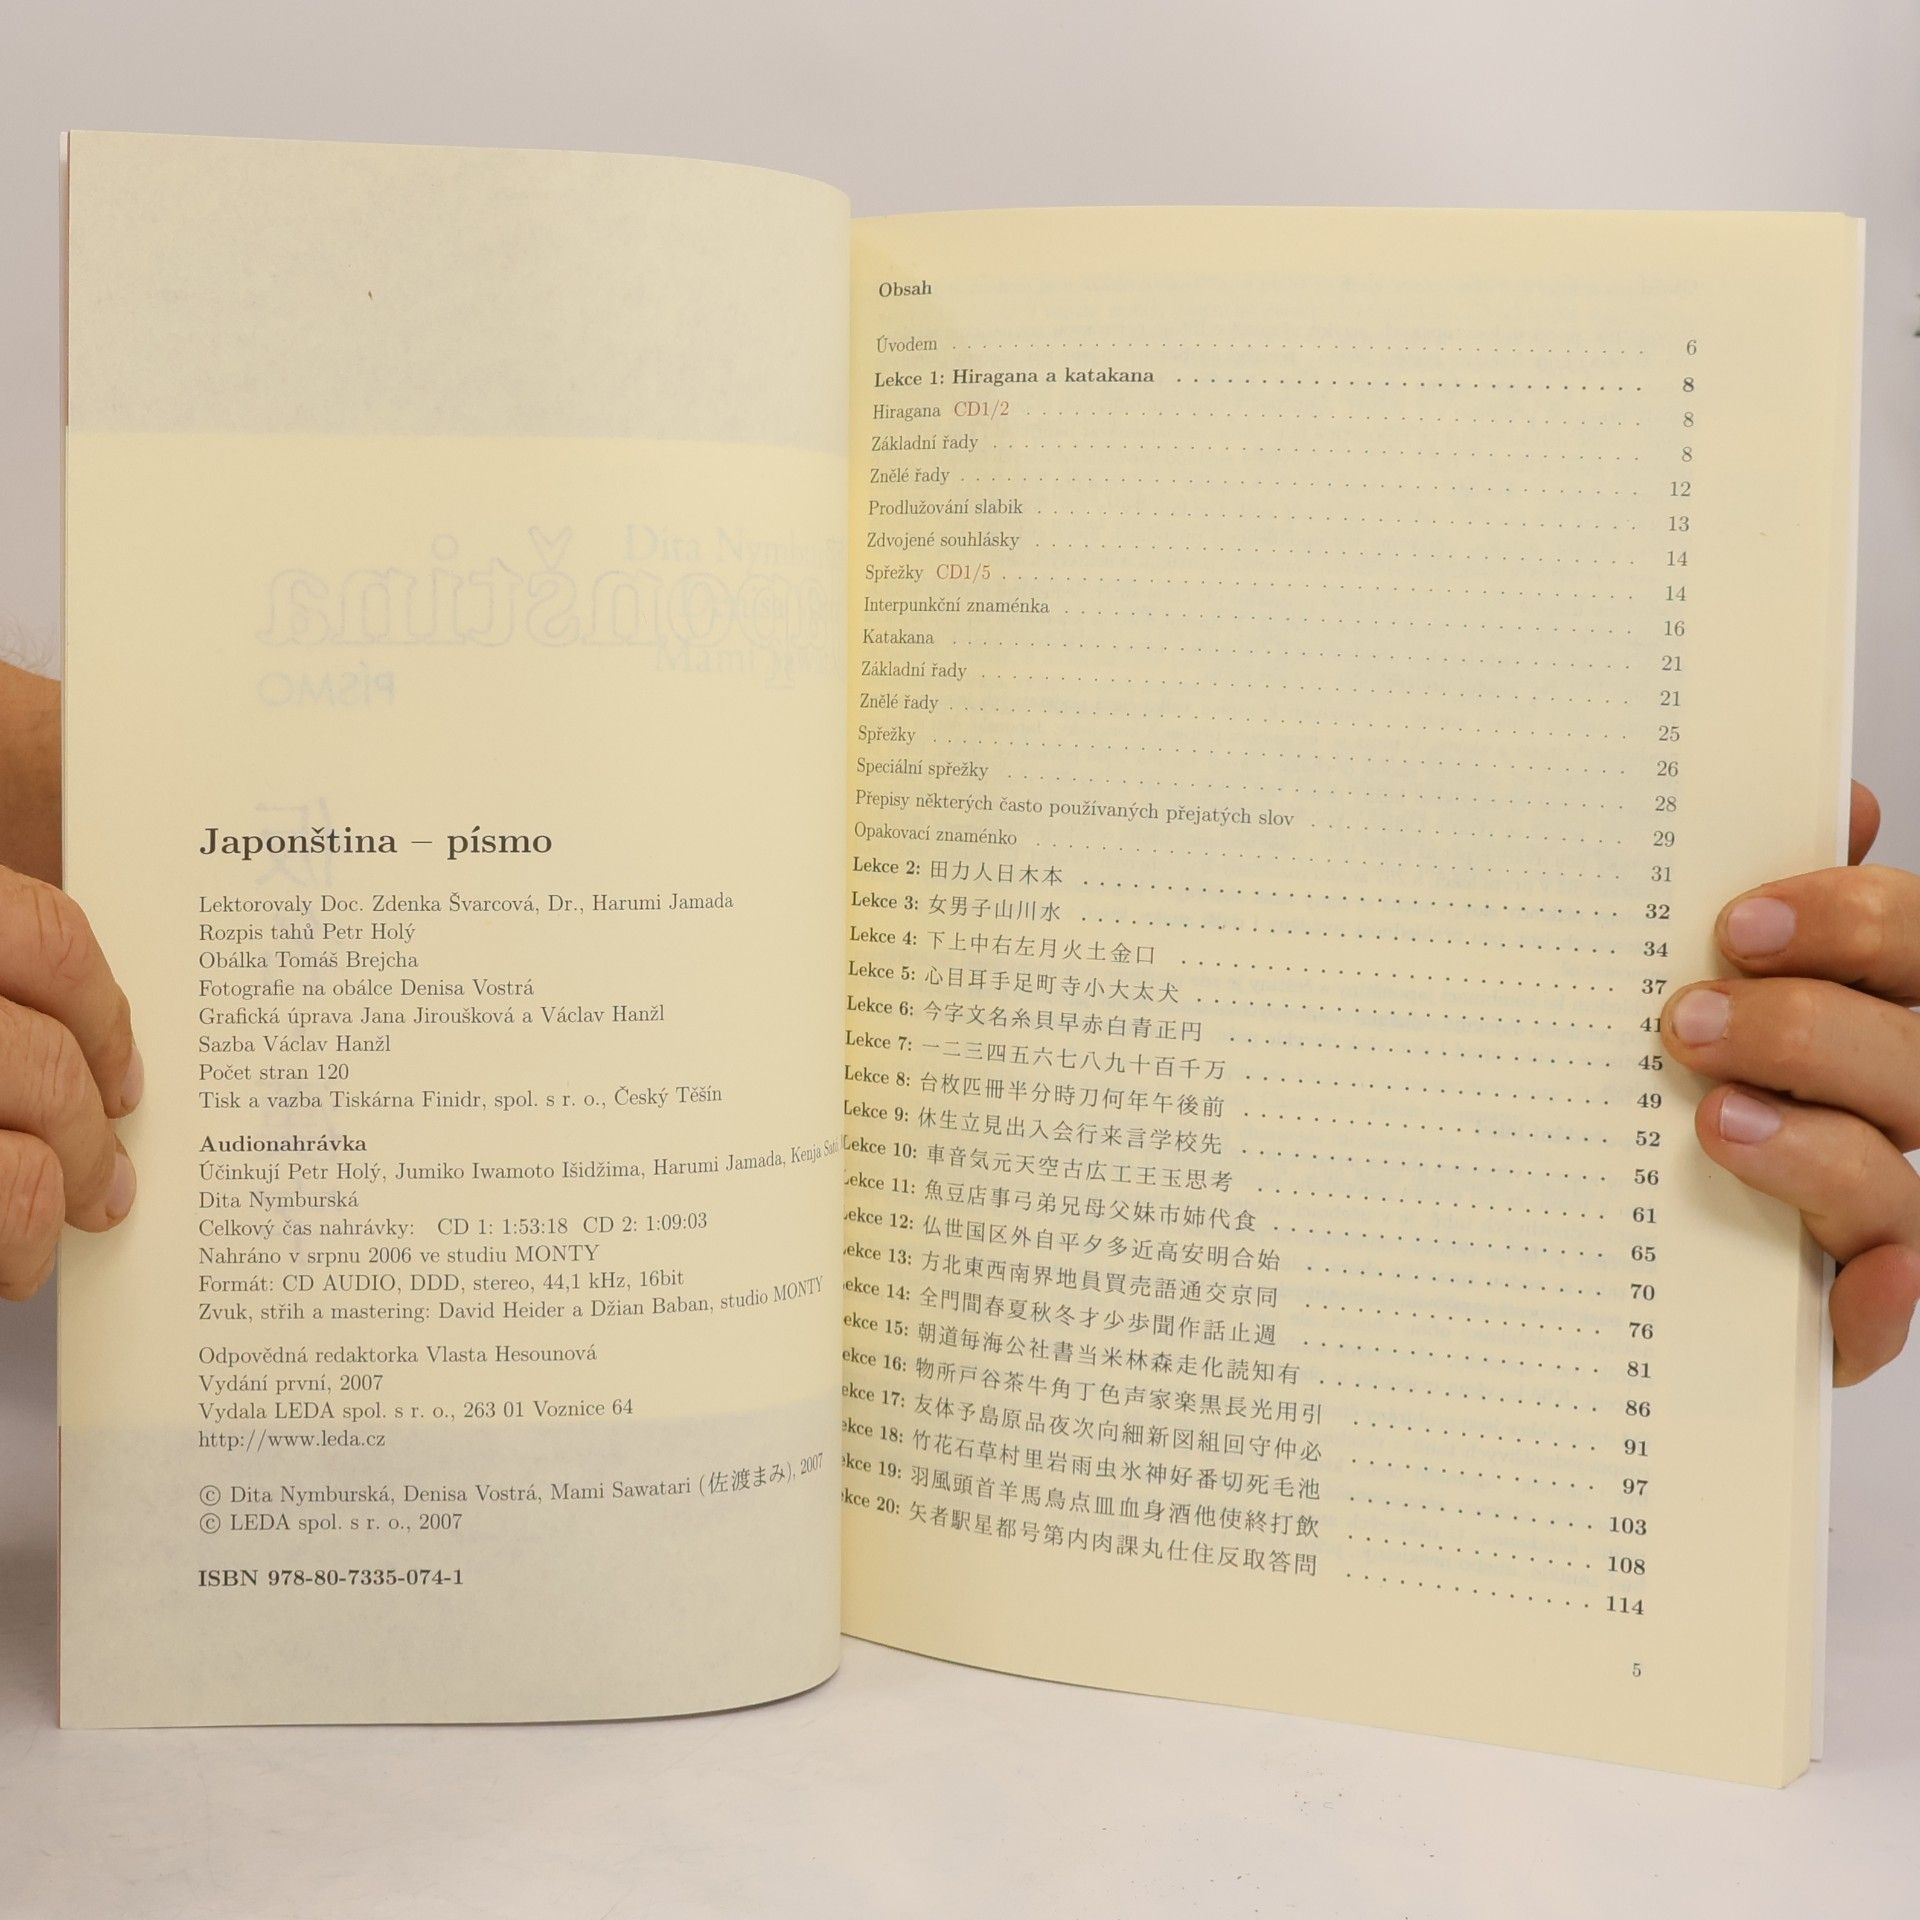 Japonština – písmo
Lektorovaly Doc. Zdenka Švarcová, Dr., Harumi Jamada
Rozpis tahů Petr Holý
Obálka Tomáš Brejcha
Fotografie na obálce Denisa Vostrá
Grafická úprava Jana Jiroušková a Václav Hanžl
Sazba Václav Hanžl
Počet stran 120
Tisk a vazba Tiskárna Finidr, spol. s r. o., Český Těšín
Audionahrávka
Účinkují Petr Holý, Jumiko Iwamoto Išidžima, Harumi Jamada, Kenja
Dita Nymburská
Celkový čas nahrávky: CD 1: 1:53:18 CD 2: 1:09:03
Nahráno v srpnu 2006 ve studiu MONTY
Formát: CD AUDIO, DDD, stereo, 44,1 kHz, 16bit
Zvuk, střih a mastering: David Heider a Džian Baban, studio MONTY
Odpovědná redaktorka Vlasta Hesounová
Vydání první, 2007
Vydala LEDA spol. s r. o., 263 01 Voznice 64
http://www.leda.cz
© Dita Nymburská, Denisa Vostrá, Mami Sawatari (佐渡まみ), 2007
© LEDA spol. s r. o., 2007
ISBN 978-80-7335-074-1
Obsah
Úvodem . . . 6
Lekce 1: Hiragana a katakana . . . 8
Hiragana CD1/2 . . . 8
Základní řady . . . 8
Znělé řady . . . 12
Prodlužování slabik . . . 13
Zdvojené souhlásky . . . 14
Spřežky CD1/5 . . . 14
Interpunkční znaménka . . . 16
Katakana . . . 21
Základní řady . . . 21
Znělé řady . . . 25
Spřežky . . . 26
Speciální spřežky . . . 28
Přepisy některých často používaných přejatých slov . . . 29
Opakovací znaménko . . . 31
Lekce 2: 田力人日木本 . . . 32
Lekce 3: 女男子山川水 . . . 34
Lekce 4: 下上中右左月火土金口 . . . 37
Lekce 5: 心目耳手足町寺小大太犬 . . . 41
Lekce 6: 今字文名糸貝早赤白青正円 . . . 45
Lekce 7: 一二三四五六七八九十百千万 . . . 49
Lekce 8: 台枚匹冊半分時刀何年午後前 . . . 52
Lekce 9: 休生立見出入会行来言学校先 . . . 56
Lekce 10: 車音気元天空古広工王玉思考 . . . 61
Lekce 11: 魚豆店事弓弟兄母父妹市姉代食 . . . 65
Lekce 12: 仏世国区外自平夕多近高安明合始 . . . 70
Lekce 13: 方北東西南界地員買売語通交京同 . . . 76
Lekce 14: 全門間春夏秋冬才少歩聞作話止週 . . . 81
ekce 15: 朝道毎海公社書当米林森走化読知有 . . . 86
ekce 16: 物所戸谷茶牛角丁色声家楽黒長光用引 . . . 91
ekce 17: 友体予島原品夜次向細新図組回守仲必 . . . 97
ekce 18: 竹花石草村里岩雨虫氷神好番切死毛池 . . . 103
ekce 19: 羽風頭首羊馬鳥点皿血身酒他使終打飲 . . . 108
ekce 20: 矢者駅星都号第内肉課丸仕住反取答問 . . . 114
5